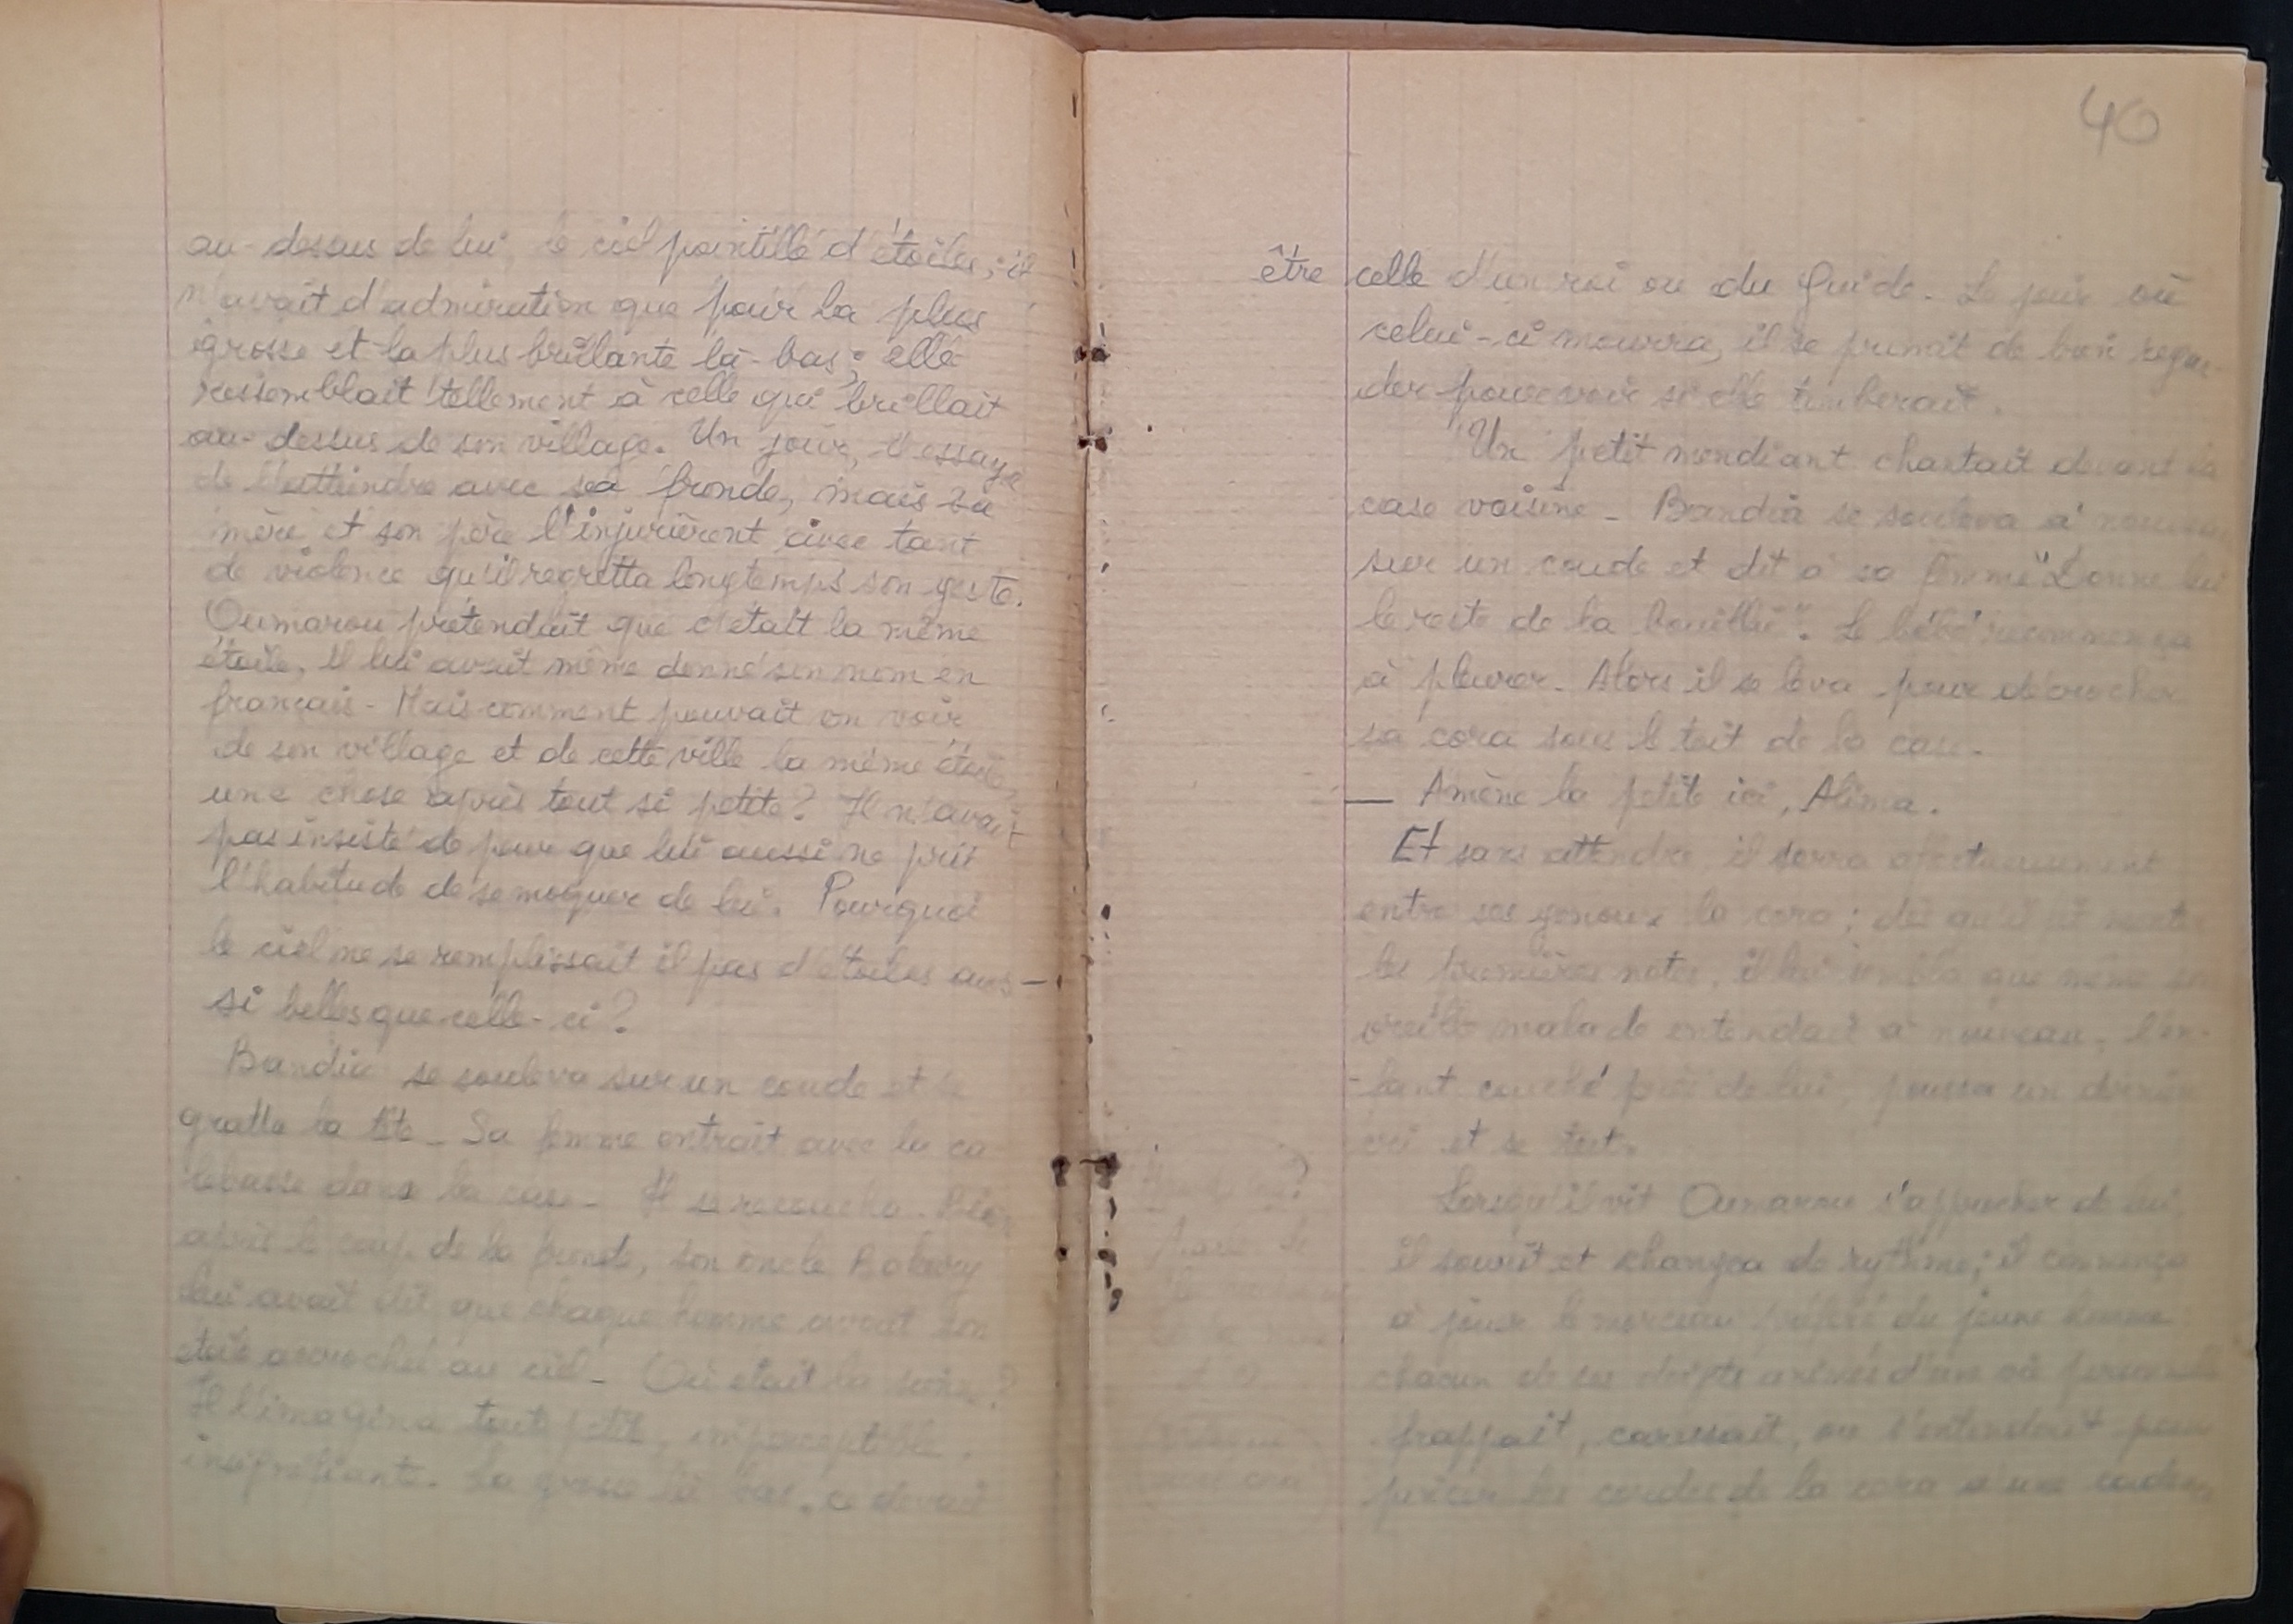 au-dessus de lui, le ciel pointillé d'étoiles; il
n'avait d'admiration que pour la plus
grosse et la plus brillante là-bas; elle
ressemblait tellement à celle qui brillait
au-dessus de son village. Un jour, il essaya
de l'atteindre avec sa fronde, mais sa
mère et son père l'injurièrent avec tant
de violence qu'il regretta longtemps son geste.
Oumarou prétendait que c'était la même
étoile, il lui avait même donné son nom en
français - Mais comment pouvait on voir
de son village et de cette ville la même étoile,
une chose après tout si petite? Il n'avait
pas insisté de peur que lui aussi ne prît
l'habitude de se moquer de lui. Pourquoi
le ciel ne se remplissait il pas d'étoiles aus-
si belles que celle-ci?
Bandia se souleva sur un coude et se
gratta la tête - Sa femme entrait avec la ca
lebasse dans la case - Il se recoucha - Bien
après le coup de la fronde, son oncle
lui avait dit que chaque homme avait son
étoile accrochée au ciel - Où était la sienne?
Il l'imagina tout petit, imperceptible,
insignifiante. La grosse là bas, ce devait
40
être celle d'un roi ou du Guide. Le jour où
celui-ci mourra, il se promit de bien regar-
der pour voir si elle tomberait.
Un petit mendiant chantait devant la
case voisine - Bandia se souleva à nouveau
sur un coude et dit à sa femme "Donne lui
le reste de la bouillie". Le bébé recommença
à pleurer. Alors il se leva pour décrocher
sa cora sous le toit de la case.
— Amène la petite ici, Alima.
Et sans attendre, il serra affectueusement
entre ses genoux la cora; dès qu'il fit
les premières notes, il lui sembla que même son
oreille malade entendait à nouveau; l'en-
-fant couché près de lui, poussa un dernier
cri et se tut.
Lorsqu'il vit Oumarou s'approcher de lui,
il sourit et changea de rythme; il commença
à jouer le morceau préféré du jeune homme
chacun de ses doigts animés d'une vie personnelle
frappait, caressait, ou s'entendait pour
pincer les cordes de la cora à une